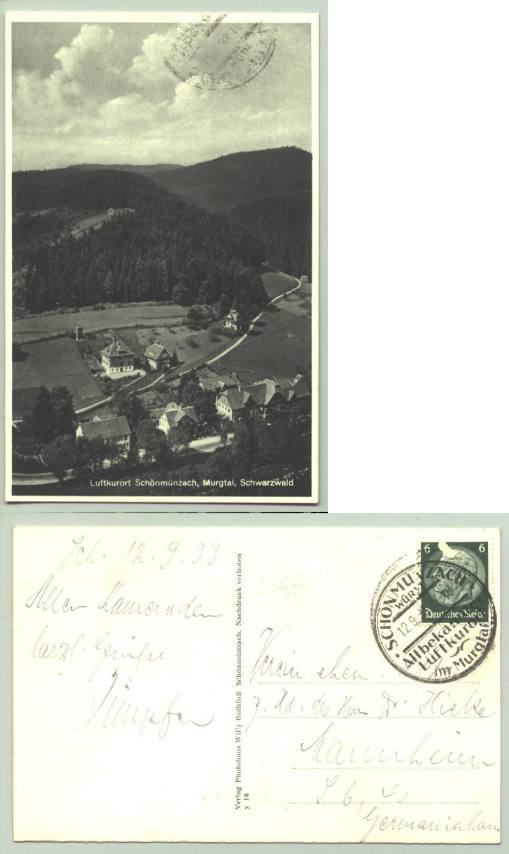 Luftkurort Schönmünzach, Murgtal, Schwarzwald
Sch. 12.9.33
Allen Kameraden
herzl. Grüße
Verlag Photohaus Willy Rothfuß Schönmünzach. Nachdruck verboten
y 16
6 6
Deutsches Reich
SCHÖNMÜNZACH
WÜRTT
12.9.
Altbekannter
Luftkurort
im Murgtal
Verein ehem.
z. Hd. des Herrn Dr. Hieke
Mannheim
Germaniahaus